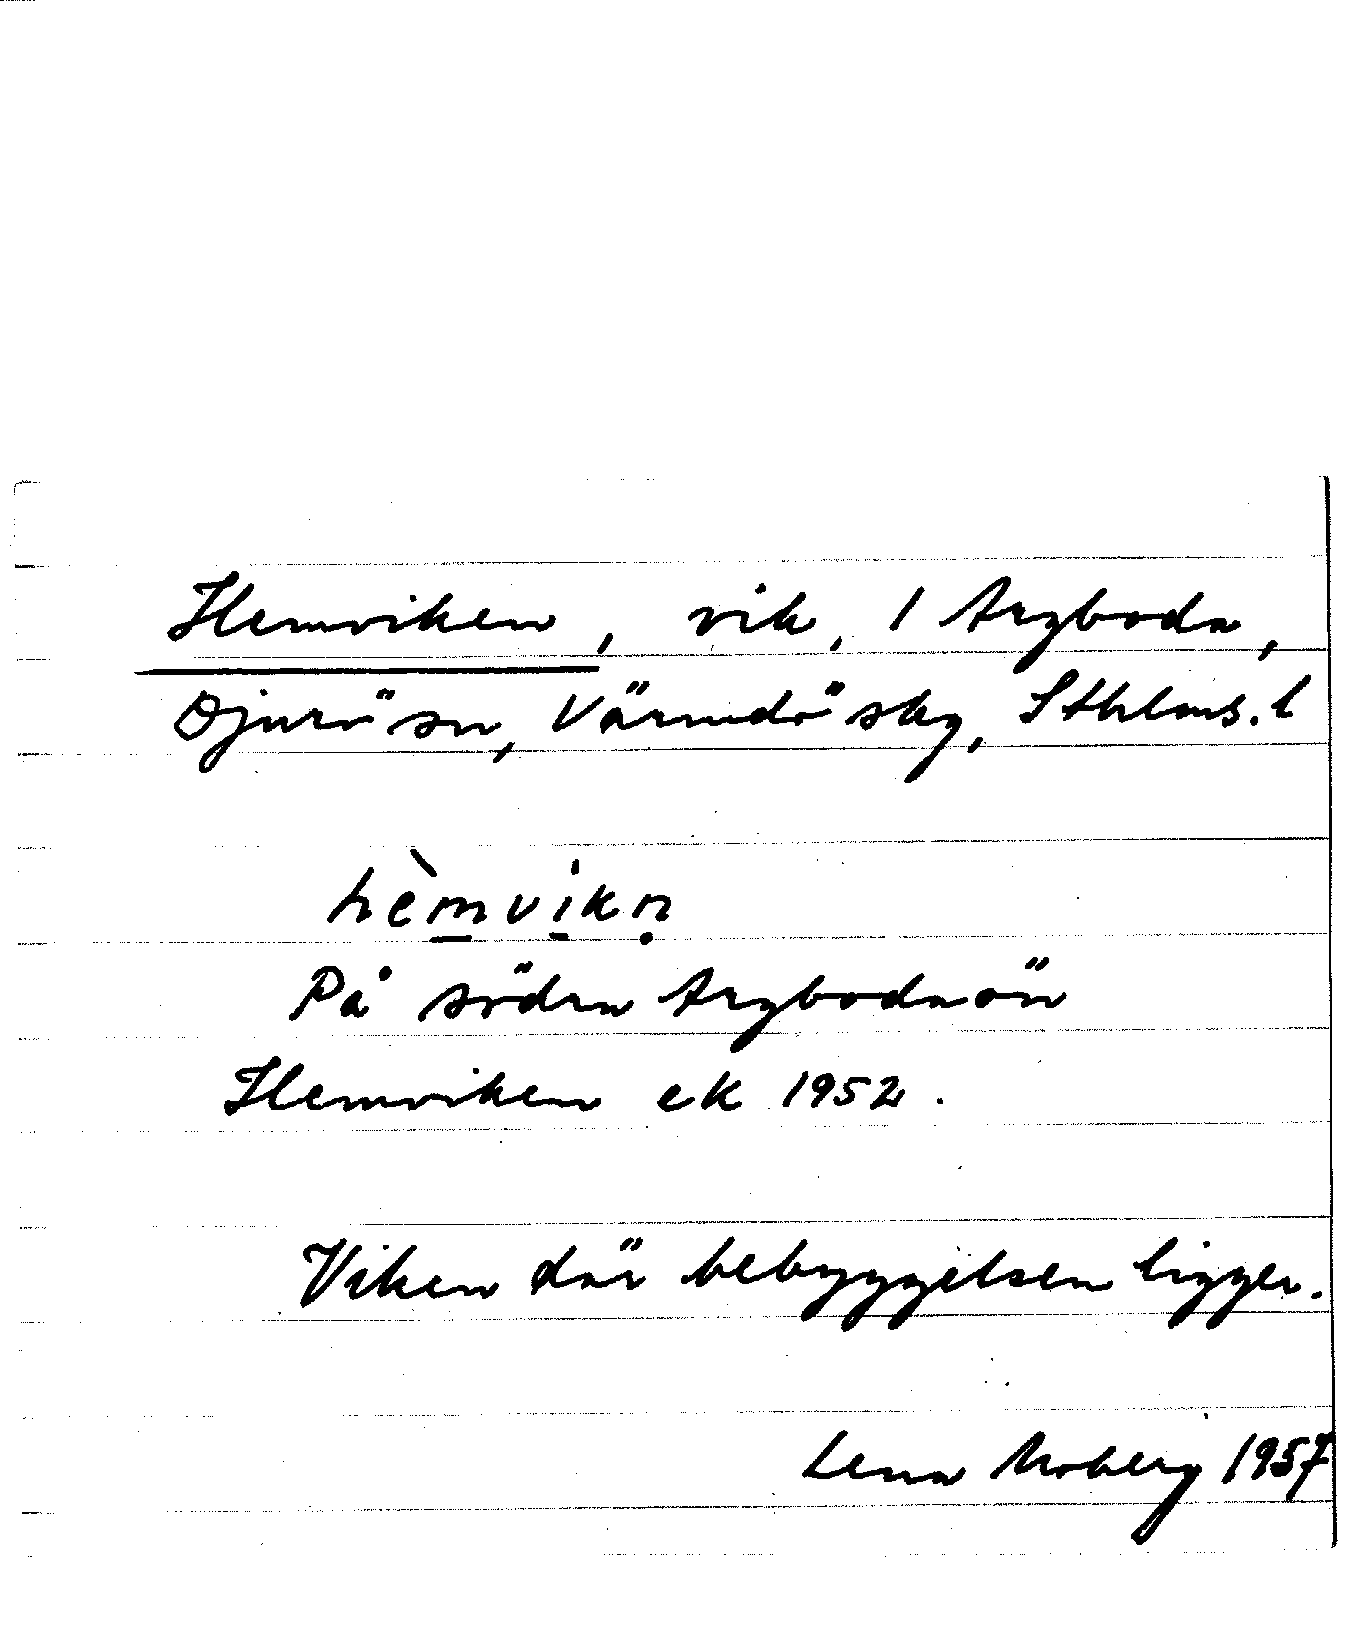 Hemviken, vik, 1 Aryboda,
Djurö sn, Värmdö skg, Sthlms. l
hèm̲vi̲kṇ
På södra Arybodaön
Hemviken ek 1952.
Viken där bebyggelsen ligger.
Lena Moberg 1957